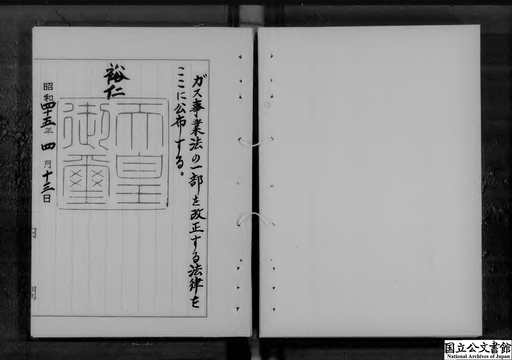 ガス事業法の一部を改正する法律を
ここに公布する。
裕仁
天皇
御璽
昭和四十五年四月十三日
内閣
国立公文書館
National Archives of Japan